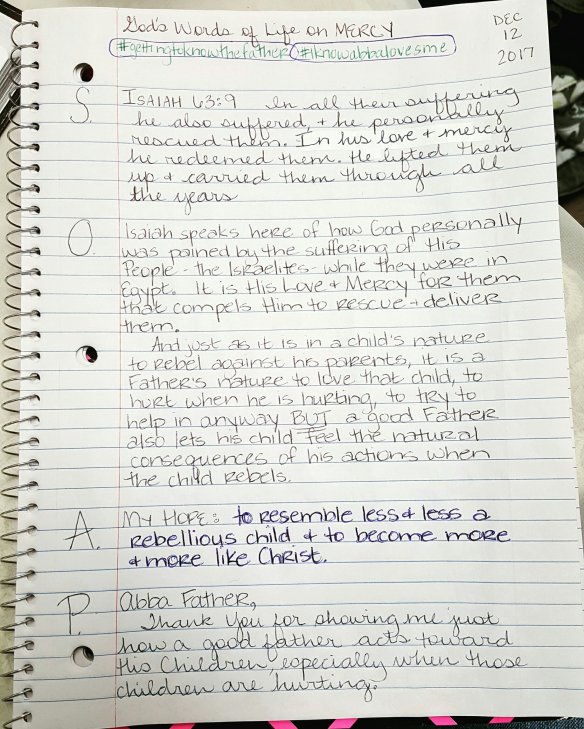 God's Words of Life on MERCY
DEC
12
2017
#gettingtoknowthefather #Iknowabbalovesme
S. ISAIAH 63:9 In all their suffering
he also suffered, + he personally
rescued them. In his love + mercy
he redeemed them. He lifted them
up + carried them through all
the years
O. Isaiah speaks here of how God personally
was pained by the suffering of His
People - the Israelites - while they were in
Egypt. It is His Love + Mercy for them
that compels Him to rescue + deliver
them.
And just as it is in a child's nature
to rebel against his parents, it is a
Father's nature to love that child, to
hurt when he is hurting, to try to
help in anyway BUT a good Father
also lets his child feel the natural
consequences of his actions when
the child rebels.
A. MY HOPE: to resemble less & less a
rebellious child & to become more
& more like Christ.
P. Abba Father,
Thank You for showing me just
how a good father acts toward
His Children especially when those
children are hurting.